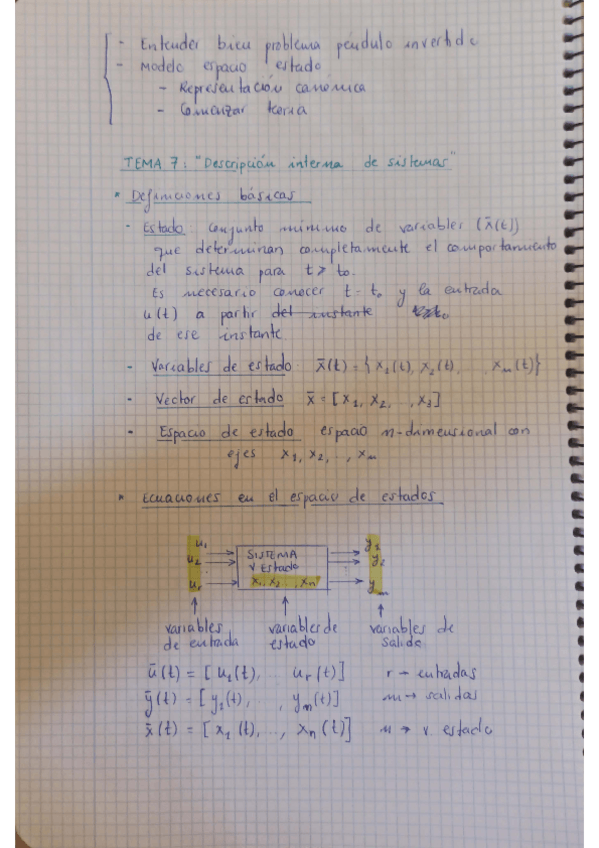 - Entender bien problema péndulo invertido
- Modelo espacio estado
- Representación canónica
- Comenzar teoria
TEMA 7: "Descripción interna de sistemas"
• Definiciones básicas
- Estado conjunto mínimo de variables (x̄(t))
que determinan completamente el comportamiento
del sistema para t ≥ t₀.
Es necesario conocer t = t₀ y la entrada
u(t) a partir del instante
de ese instante.
- Variables de estado x̄(t) = { x₁(t), x₂(t), , xₙ(t)}
- Vector de estado x̄ = [x₁, x₂, . , x₃]
- Espacio de estado espacio n-dimensional con
ejes x₁, x₂, . , xₙ
• Ecuaciones en el espacio de estados
u₁ y₁
u₂ SISTEMA y₂
V Estado
uᵣ x₁, x₂ . , xₙ yₘ
variables variables de variables de
de entrada estado salida
ū(t) = [ u₁(t), ... uᵣ(t)] r → entradas
ȳ(t) = [ y₁(t), . , yₘ(t)] m → salidas
x̄(t) = [ x₁(t), .. , xₙ(t)] n → v. estado